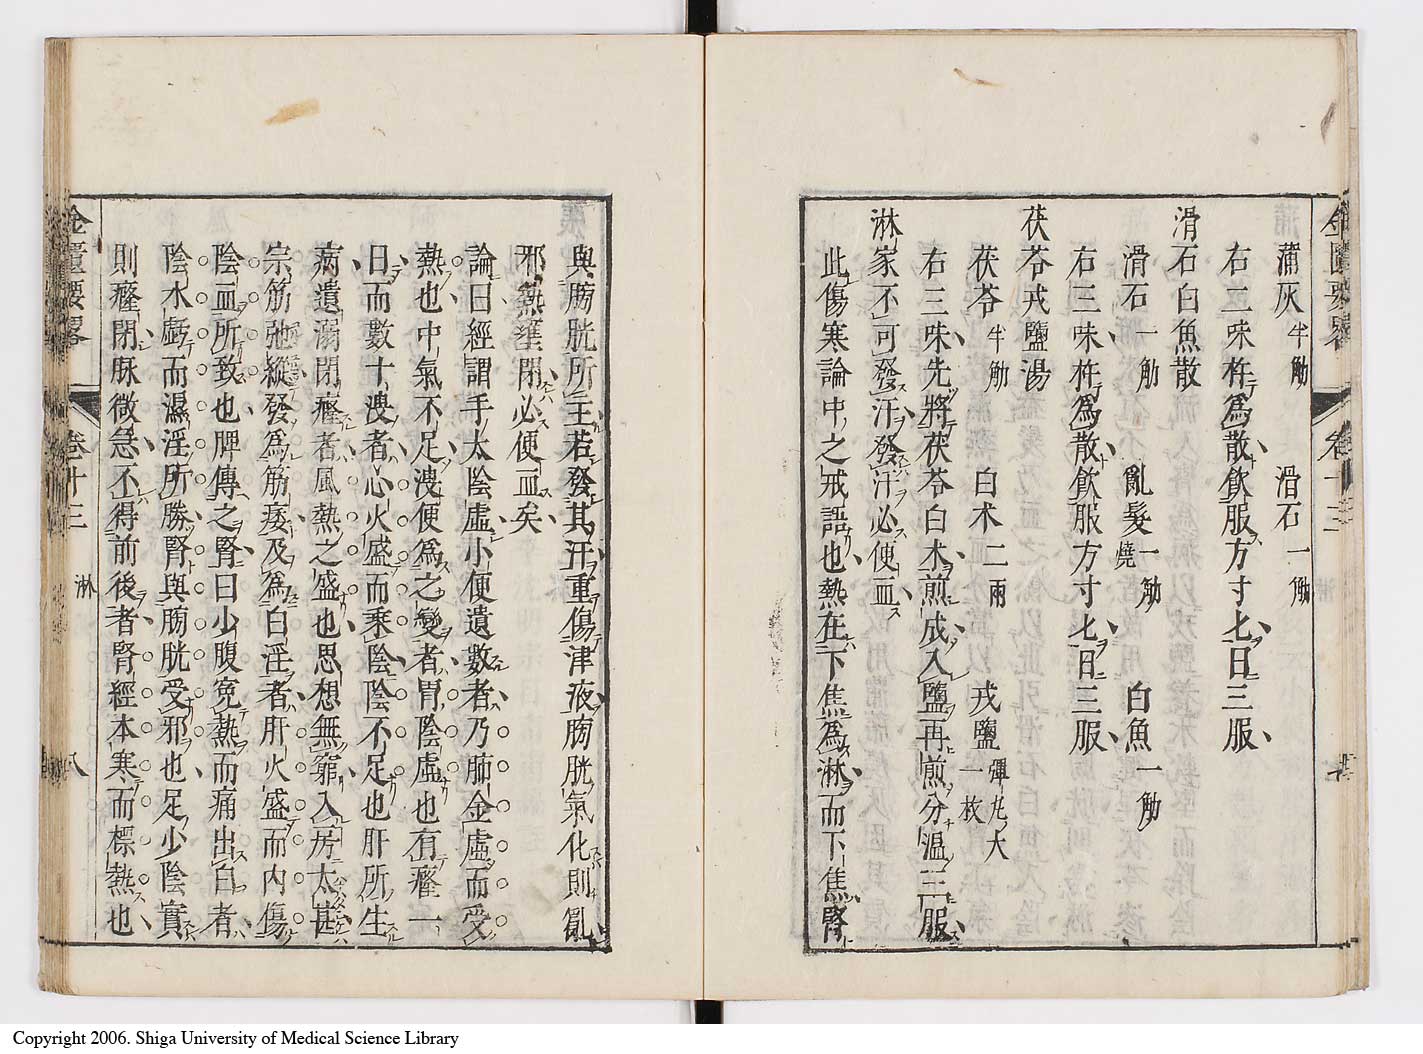 蒲灰 半觔 滑石 一觔
右二味杵爲散飲服方寸匕日三服
滑石白魚散
滑石 一觔 亂髮 一觔 燒 白魚 一觔
右三味杵爲散飲服方寸匕日三服
茯苓戎鹽湯
茯苓 半觔 白朮 二兩 戎鹽 彈丸大一枚
右三味先將茯苓白朮煎成入鹽再煎分溫三服
淋家不可發汗發汗必便血
此傷寒論中之戒語也熱在下焦爲淋而下焦腎
與膀胱所主若發其汗重傷津液膀胱氣化則亂
邪熱壅閉必便血矣
論曰經謂手太陰虛小便遺數者乃肺金虛而受
熱也中氣不足溲便爲之變者胃陰虛也有癃一
日而數十溲者心火盛而乘陰陰不足也肝所生
病遺溺閉癃者風熱之盛也思想無窮入房太甚
宗筋弛縱發爲筋痿及爲白淫者肝火盛而內傷
陰血所致也脾傳之腎曰少腹寃熱而痛出白者
陰水虧而濕淫所勝腎與膀胱受邪也足少陰實
則癃閉脉微急不得前後者腎經本寒而標熱也
金匱要畧 卷十三 淋 八
Copyright 2006. Shiga University of Medical Science Library